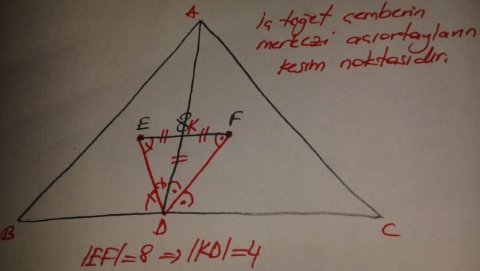 A
iç teğet çemberin
merkezi açıortayların
kesim noktasıdır.
E 8 K F
B D C
|EF|=8 ⇒ |KD|=4